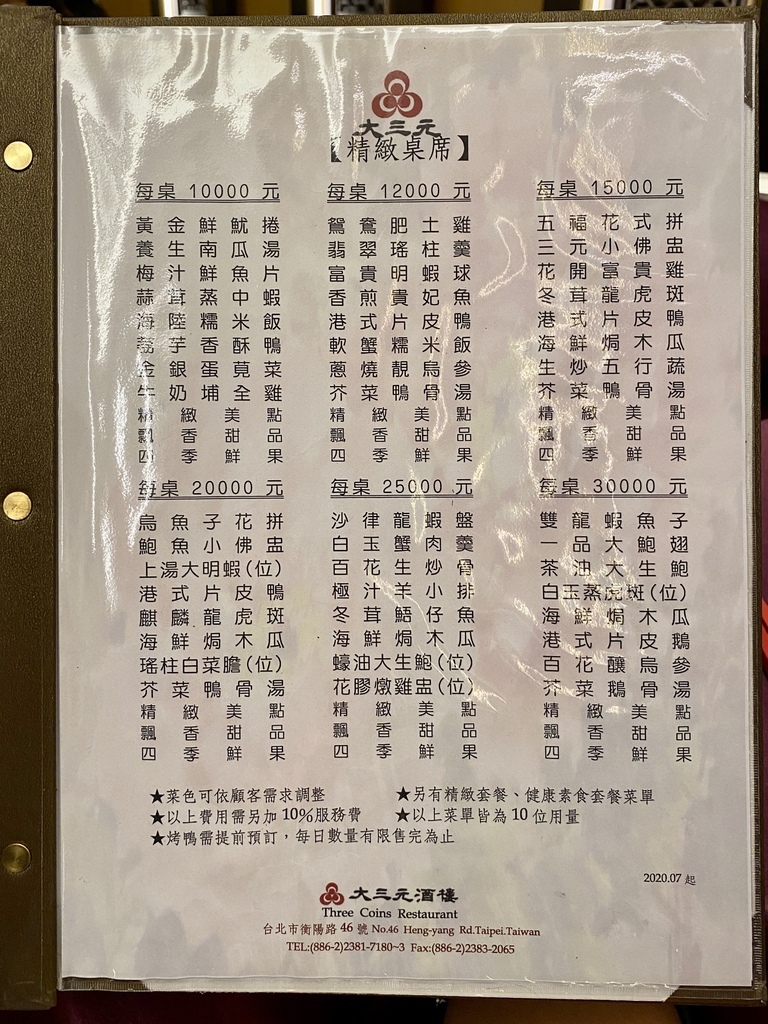 大三元
【精緻桌席】
每桌 10000 元
黃金鮮魷捲
養生南瓜湯
梅汁鮮魚片
蒜茸蒸中蝦
海陸糯米飯
荔芋香酥鴨
金銀蛋莧菜
牛奶埔全雞
精緻美點
飄香甜品
四季鮮果
每桌 12000 元
鴛鴦肥土雞
翡翠瑤柱羹
富貴明蝦球
香煎貴妃魚
港式片皮鴨
軟蟹糯米飯
蔥燒靚烏參
芥菜鴨骨湯
精緻美點
飄香甜品
四季鮮果
每桌 15000 元
五福花式拼
三元小佛盅
花開富貴雞
冬茸龍虎斑
港式片皮鴨
海鮮焗木瓜
生炒五行蔬
芥菜鴨骨湯
精緻美點
飄香甜品
四季鮮果
每桌 20000 元
烏魚子花拼
鮑魚小佛盅
上湯大明蝦(位)
港式片皮鴨
麒麟龍虎斑
海鮮焗木瓜
瑤柱白菜膽(位)
芥菜鴨骨湯
精緻美點
飄香甜品
四季鮮果
每桌 25000 元
沙律龍蝦盤
白玉蟹肉羹
百花生炒骨
極汁羊小排
冬茸鰡仔魚
海鮮焗木瓜
蠔油大生鮑(位)
花膠燉雞盅(位)
精緻美點
飄香甜品
四季鮮果
每桌 30000 元
雙龍蝦魚子
一品大鮑翅
茶油大生鮑
白玉蒸虎斑(位)
海鮮焗木瓜
港式片皮鵝
百花釀烏參
芥菜鵝骨湯
精緻美點
飄香甜品
四季鮮果
★菜色可依顧客需求調整
★另有精緻套餐、健康素食套餐菜單
★以上費用需另加 10%服務費
★以上菜單皆為 10 位用量
★烤鴨需提前預訂，每日數量有限售完為止
2020.07 起
大三元酒樓
Three Coins Restaurant
台北市衡陽路 46 號 No.46 Heng-yang Rd.Taipei.Taiwan
TEL:(886-2)2381-7180~3 Fax:(886-2)2383-2065